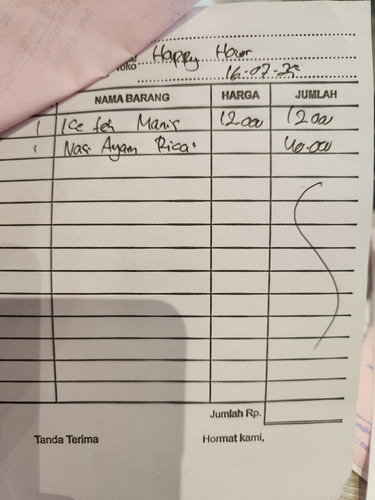 Happy Hour
TOKO
16-07-23
NAMA BARANG HARGA JUMLAH
1 Ice teh Manis 12.000 12.000
1 Nasi Ayam Rica² 40.000
Jumlah Rp.
Tanda Terima Hormat kami,